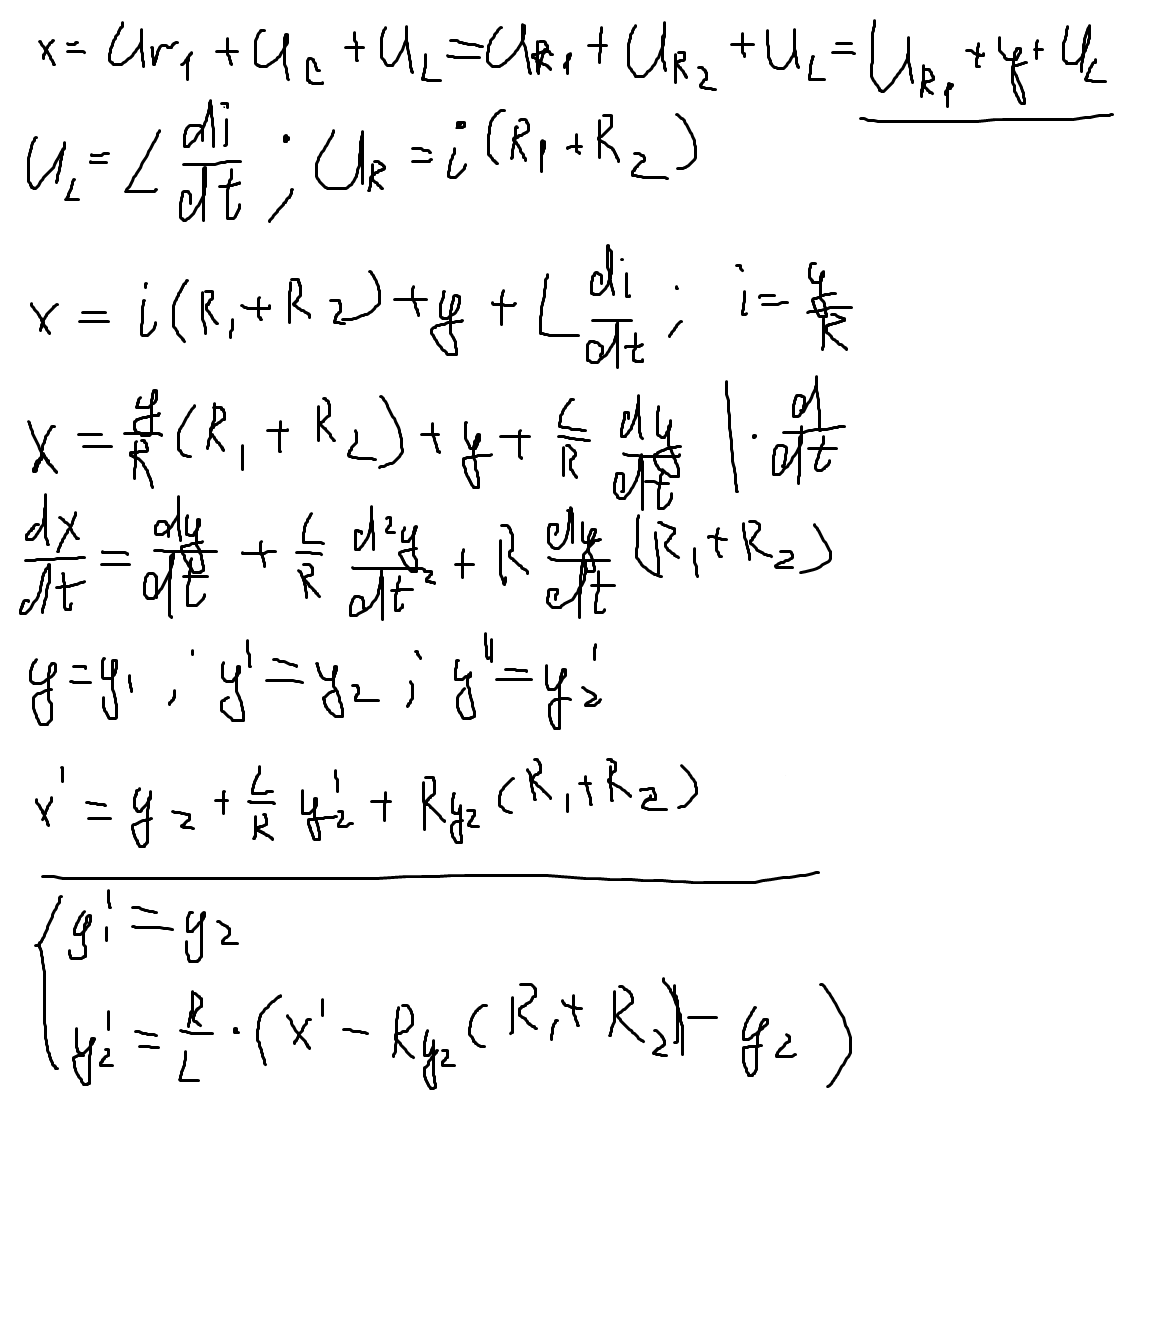 x = Ur₁ + U_C + U_L = U_R₁ + U_R₂ + U_L = U_R₁ + y + U_L
U_L = L di/dt ; U_R = i (R₁ + R₂)
x = i (R₁ + R₂) + y + L di/dt ; i = y/R
x = y/R (R₁ + R₂) + y + L/R dy/dt | · d/dt
dx/dt = dy/dt + L/R d²y/dt² + R dy/dt (R₁ + R₂)
y = y₁ ; y' = y₂ ; y'' = y₂'
x' = y₂ + L/R y₂' + Ry₂ (R₁ + R₂)
{ y₁' = y₂
y₂' = R/L · (x' - Ry₂ (R₁ + R₂) - y₂)